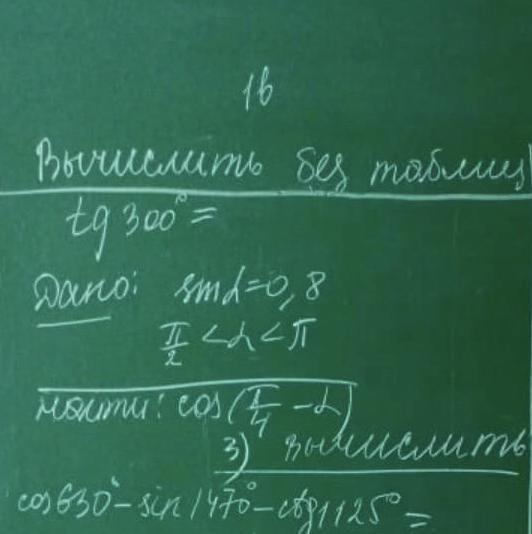 1в
Вычислить без таблиц
tg 300° =
Дано: sinα=0,8
π/2 < α < π
найти: cos(π/4 - α)
3) Вычислить
cos630° - sin1470° - ctg1125° =